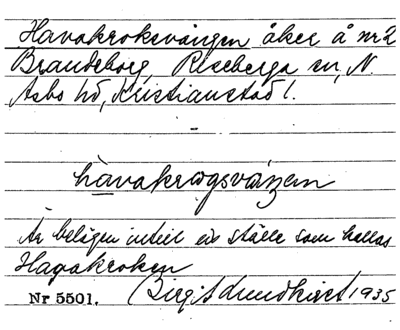 Havakroksvången åker å nr 2
Brandeborg, Riseberga sn, N.
Åsbo hd, Kristianstad l.
-
havakrogsvåŋen
Är belägen intill ett ställe som kallas
Havakroken
Nr 5501. Birgit Lundkvist 1935